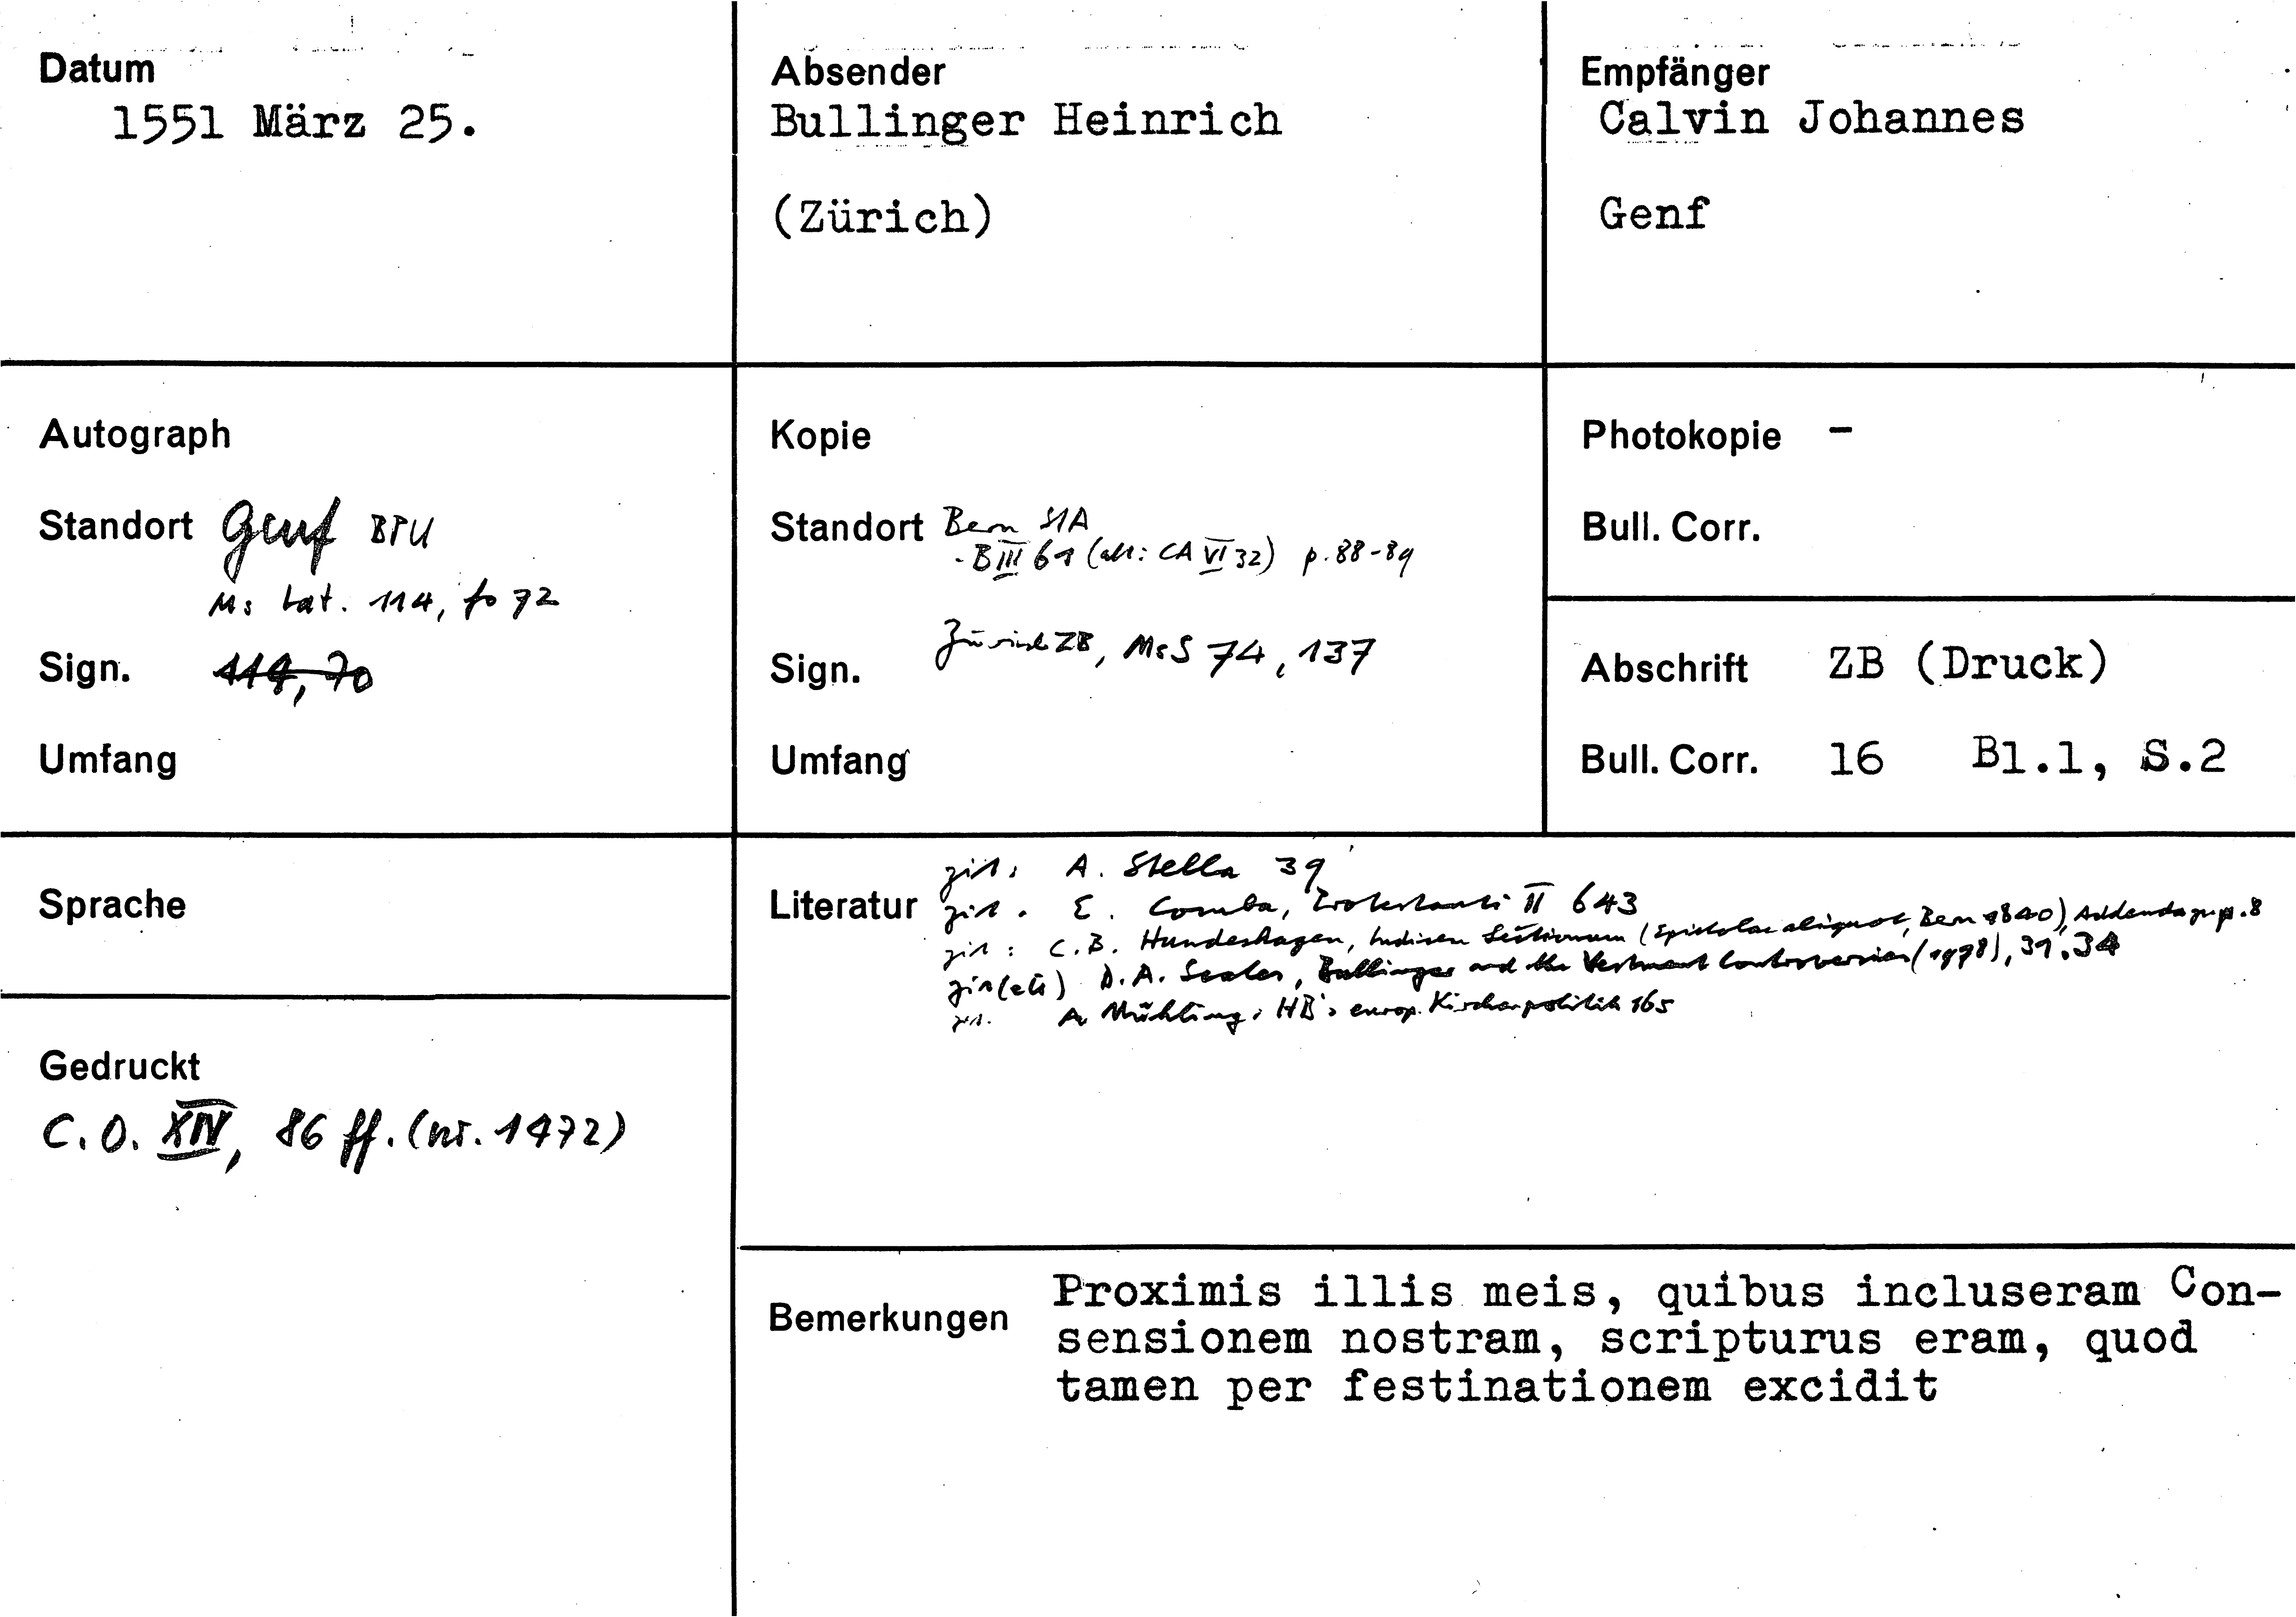 Datum
1551 März 25.
Absender
Bullinger Heinrich
(Zürich)
Empfänger
Calvin Johannes
Genf
Autograph
Standort Genf BPU
Ms lat. 114, fo 72
Sign. 114, 70
Umfang
Kopie
Standort Bern StA
- B III 61 (alt: CA VI 32) p. 88-89
Sign. Zürich ZB, Ms S 74, 137
Umfang
Photokopie -
Bull. Corr.
Abschrift ZB (Druck)
Bull. Corr. 16 Bl.1, S.2
Sprache
Gedruckt
C. O. XIV, 86 ff. (nr. 1472)
Literatur
zit: A. Stella 39
zit. E. Comba, Protestanti II 643
zit: C.B. Hundeshagen, (Epistolae aliquot, Bern 1840), Addenda zu p. 8
zit (etc) D.A. Bullinger and the Vestment Controversies (1978), 31.34
zit. A. Mühling, HB's europ. Kirchenpolitik 165
Bemerkungen
Proximis illis meis, quibus incluseram Con-
sensionem nostram, scripturus eram, quod
tamen per festinationem excidit